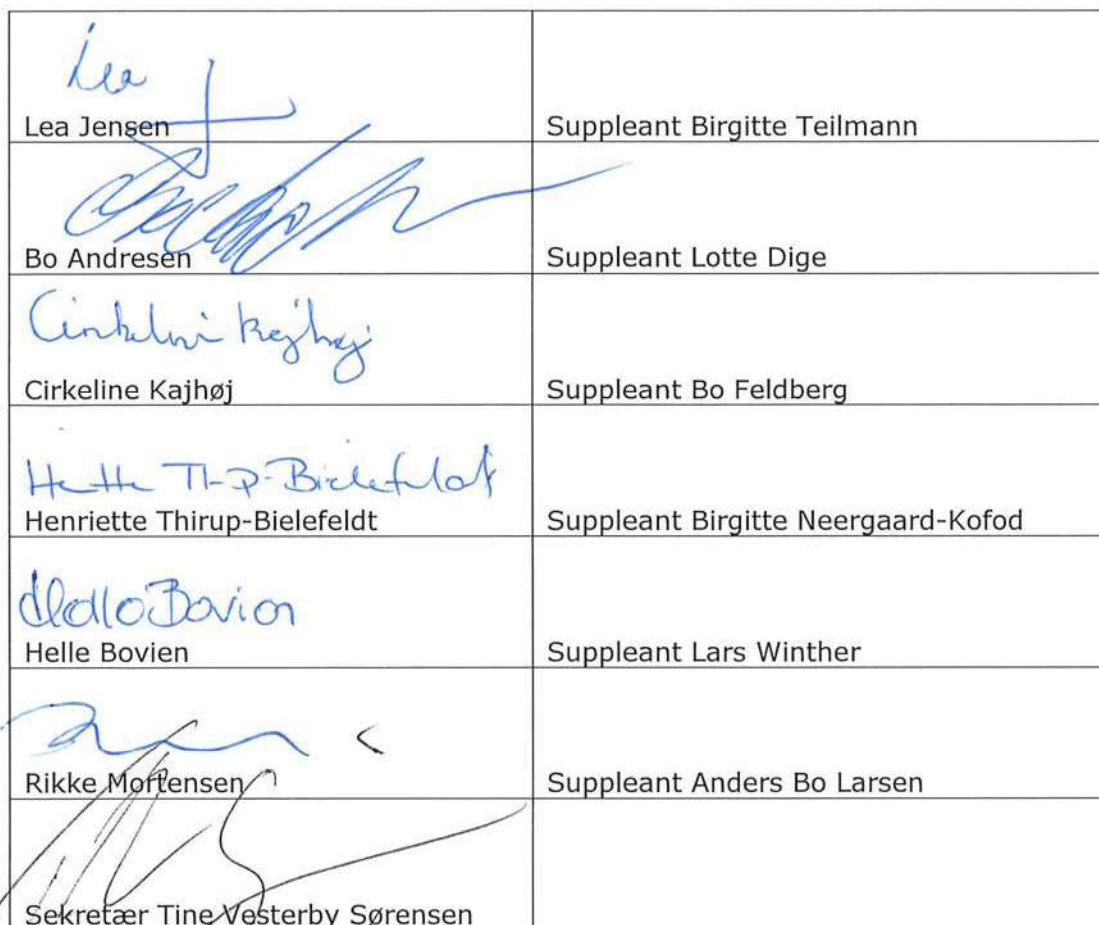 Lea
Lea Jensen
Suppleant Birgitte Teilmann
Bo Andresen
Suppleant Lotte Dige
Cirkeline Kajhøj
Suppleant Bo Feldberg
Henriette Thirup-Bielefeldt
Suppleant Birgitte Neergaard-Kofod
Helle Bovien
Suppleant Lars Winther
Rikke Mortensen
Suppleant Anders Bo Larsen
Sekretær Tine Vesterby Sørensen